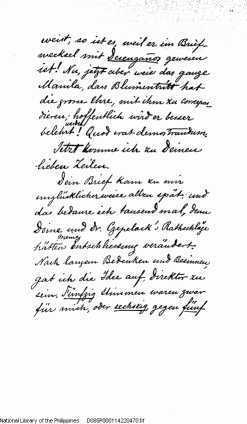 weist, so ist es, weil er im Brief-
wechsel mit Desenganos gewesen
ist! Na, jetzt aber weis das ganze
Manila, dass Blumentritt hat
die grosse Ehre, mit ihm zu correspon-
dieren; hoffentlich wird er besser
belehrt! Quod erat demostrandum.
Jetzt komme ich zu Deinen
lieben Zeilen.
Dein Brief kam zu mir
unglücklicherweise allzu spät, und
das bedaure ich tausend mal, denn
Deine und Dr. Czepelack's Rathschläge
hätten meine Entschliessung verändert.
Nach langem Bedenken und Besinnen,
gab ich die Idee auf, Direktor zu
sein. Fünfzig Stimmen waren zwar
für mich, oder sechszig gegen fünf
National Library of the Philippines